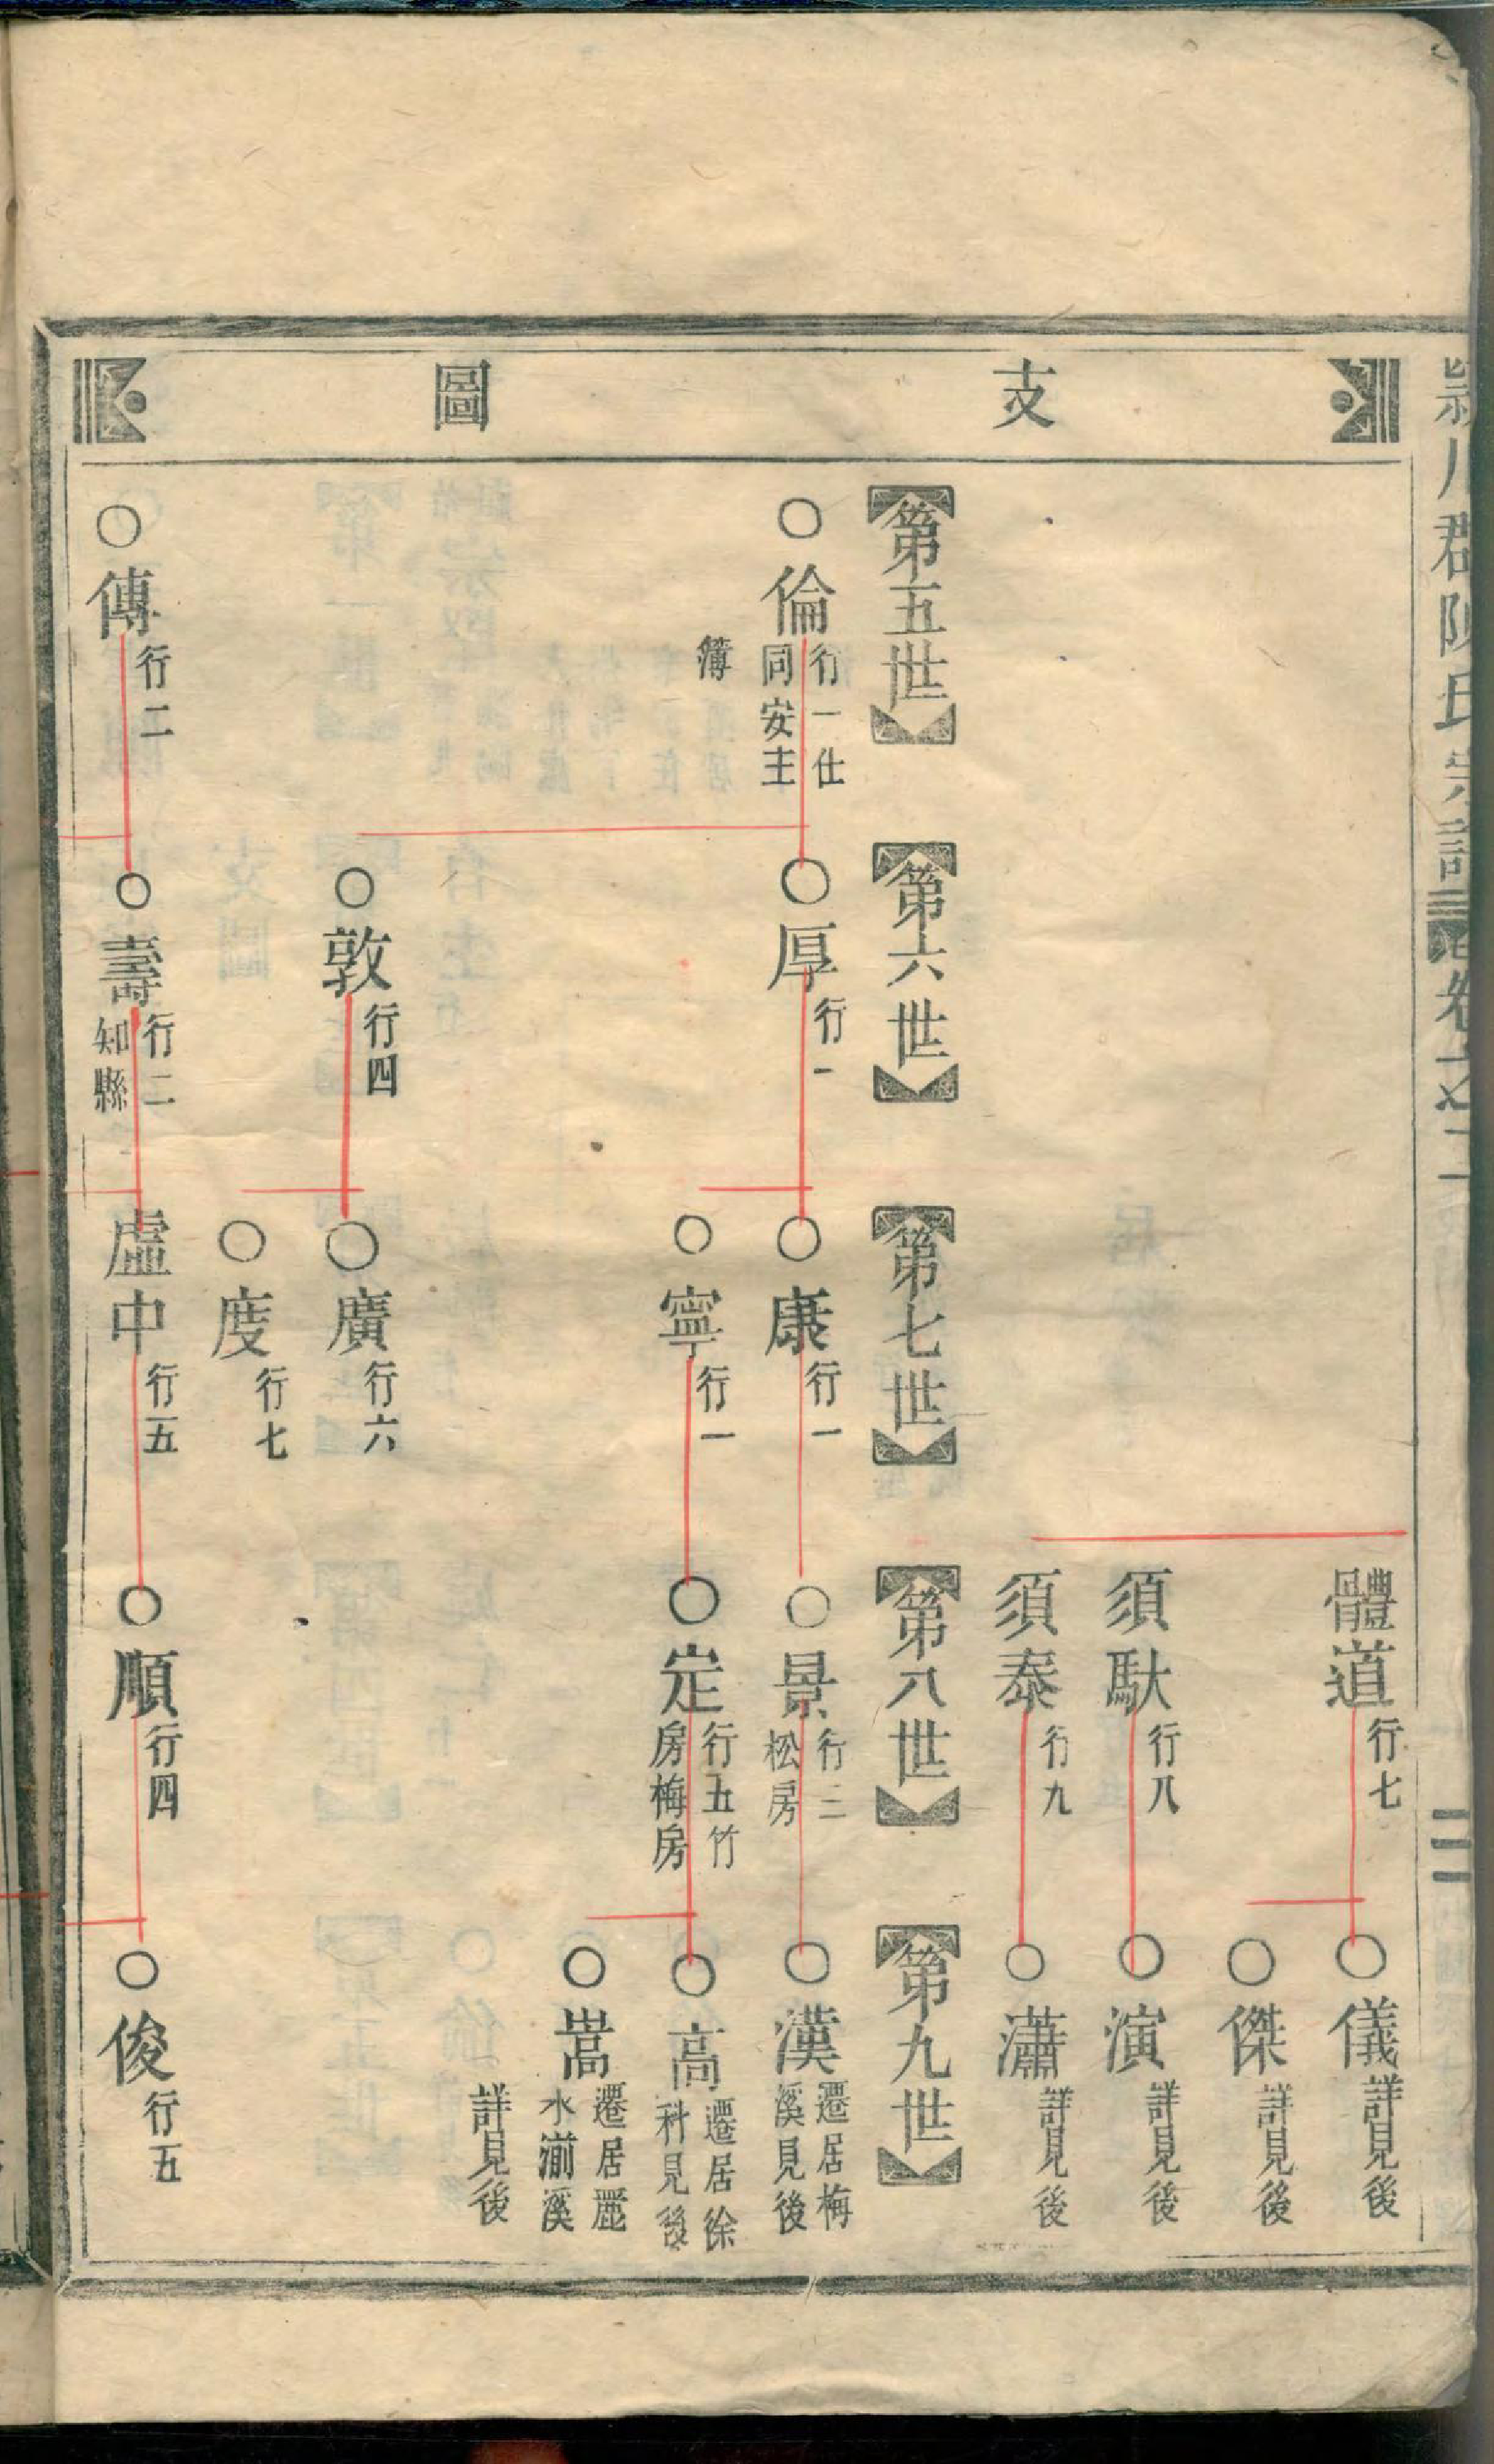 潁川郡陳氏宗譜 卷之二
支圖
體道 行七
須馱 行八
須泰 行九
儀 詳見後
傑 詳見後
演 詳見後
瀟 詳見後
第五世
第六世
第七世
第八世
第九世
倫 行一仕同安主簿
厚 行一
康 行一
景 行三松房
漢 遷居梅溪見後
寧 行一
定 行五竹房梅房
高 遷居徐科見後
嵩 遷居麗水湔溪詳見後
敦 行四
廣 行六
度 行七
傳 行二
壽 行二知縣
虛中 行五
順 行四
俊 行五